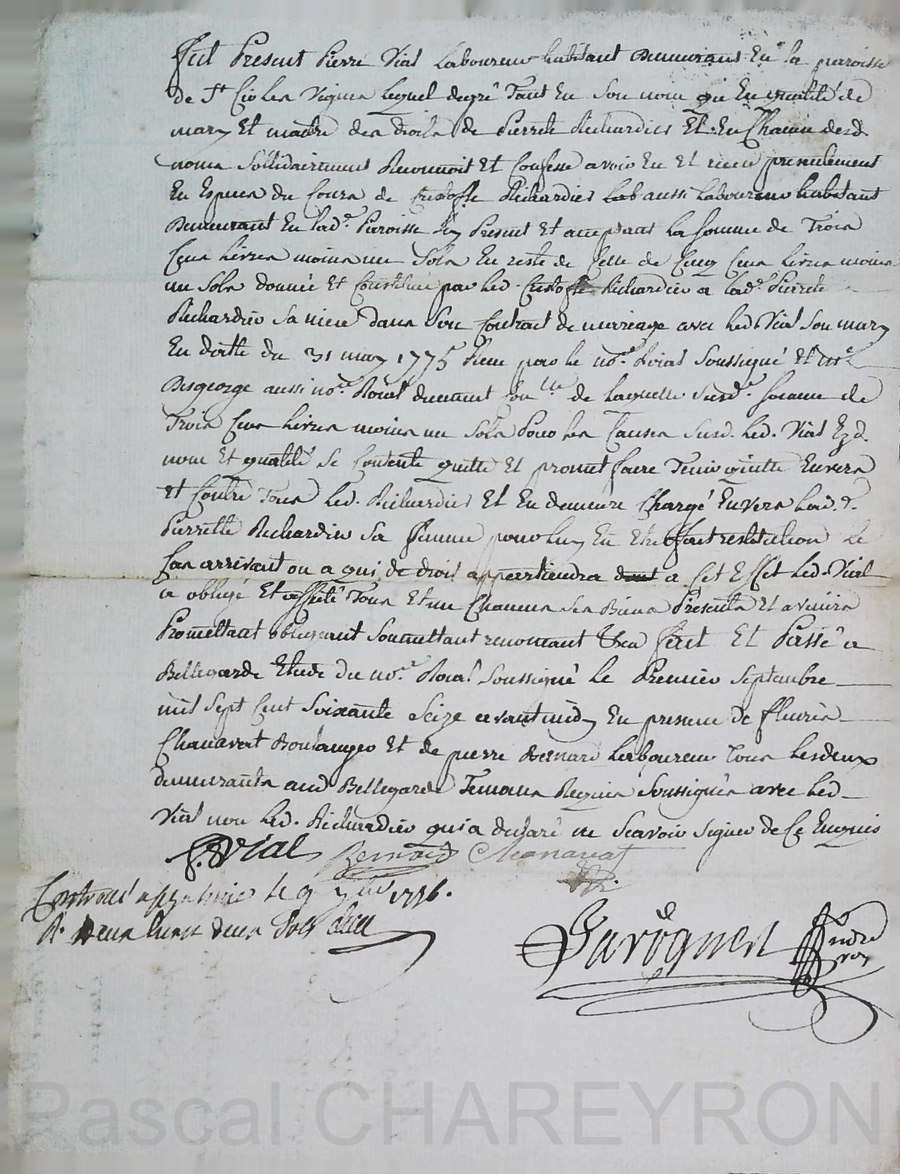 fut Present Pierre Vial Laboureur habitant Demeurant En la paroisse
de St Cir les Vignes lequel degré Tant En Son nom qu En qualité de
mary Et maitre des droits de Pierrette Richardier Et En Chacun desd.
noms Sollidairement Reconnoit Et Confesse avoir Eu Et receu presentement
En Espèces du Cours de Richardier aussi Laboureur habitant
Demeurant En lad.e Paroisse Icy Present Et acceptant la Somme de Trois
Cens Livres moins un Sols En reste de Celle de Cinq Cens Livres moins
un Sols donnée Et Constituée par led. Richardier a lad.e Pierrette
Richardier Sa niece dans Son Contract de mariage avec led. Vial Son mary
En datte du 31 may 1775 Receu par le no.re Roial Soussigné Et Me
Desgeorge aussi no.re Roial de laquelle Susd.e Somme de
Trois Cens Livres moins un Sols Pour les Causes Susd. led. Vial Ezd.
nom Et qualité Se Contente quitte Et promet faire Tenir quitte Envers
Et Contre Tous led. Richardier Et En demeure Chargé Envers lad.e
Pierrette Richardier Sa femme pour luy En Etre fait restitution le
Cas arrivant ou a qui de droit appartiendra a Cet Effet led. Vial
a obligé Et Tous Et un Chacuns Ses Biens Presents Et avenirs
Promettant obligeant Soumettant renonçant fait Et Passé a
Bellegarde Etude du no.re Roial Soussigné le Premier Septembre
mil Sept Cent Soixante Seize avant midy En presence de fleurie
Chanavat Boulanger Et de pierre Bernard Laboureur Tous Lesdeux
demeurants aud. Bellegarde Temoins Requis Soussignés avec led.
Vial non led. Richardier qui a declaré ne Scavoir Signer de Ce Enquis
P. Vial Bernard Chanavat
Controllé a le 9 7bre 1776.
R. deux Livres deux Sols
Pascal CHAREYRON